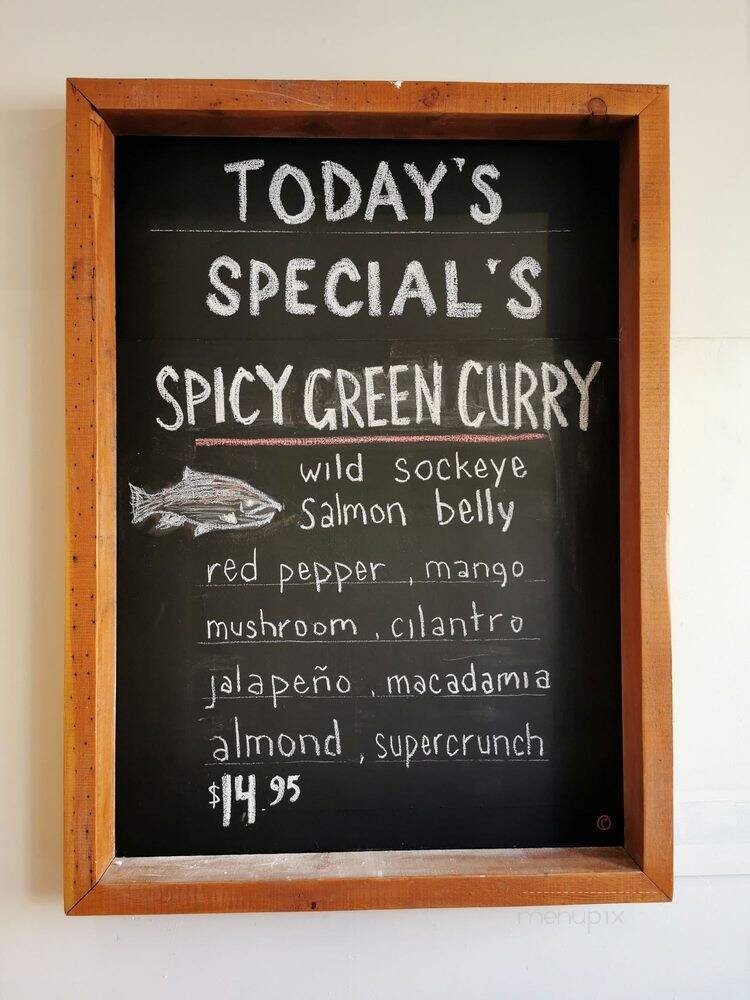 TODAY'S
SPECIAL'S
SPICY GREEN CURRY
wild sockeye
salmon belly
red pepper, mango
mushroom, cilantro
jalapeño, macadamia
almond, supercrunch
$14.95
©
menupix